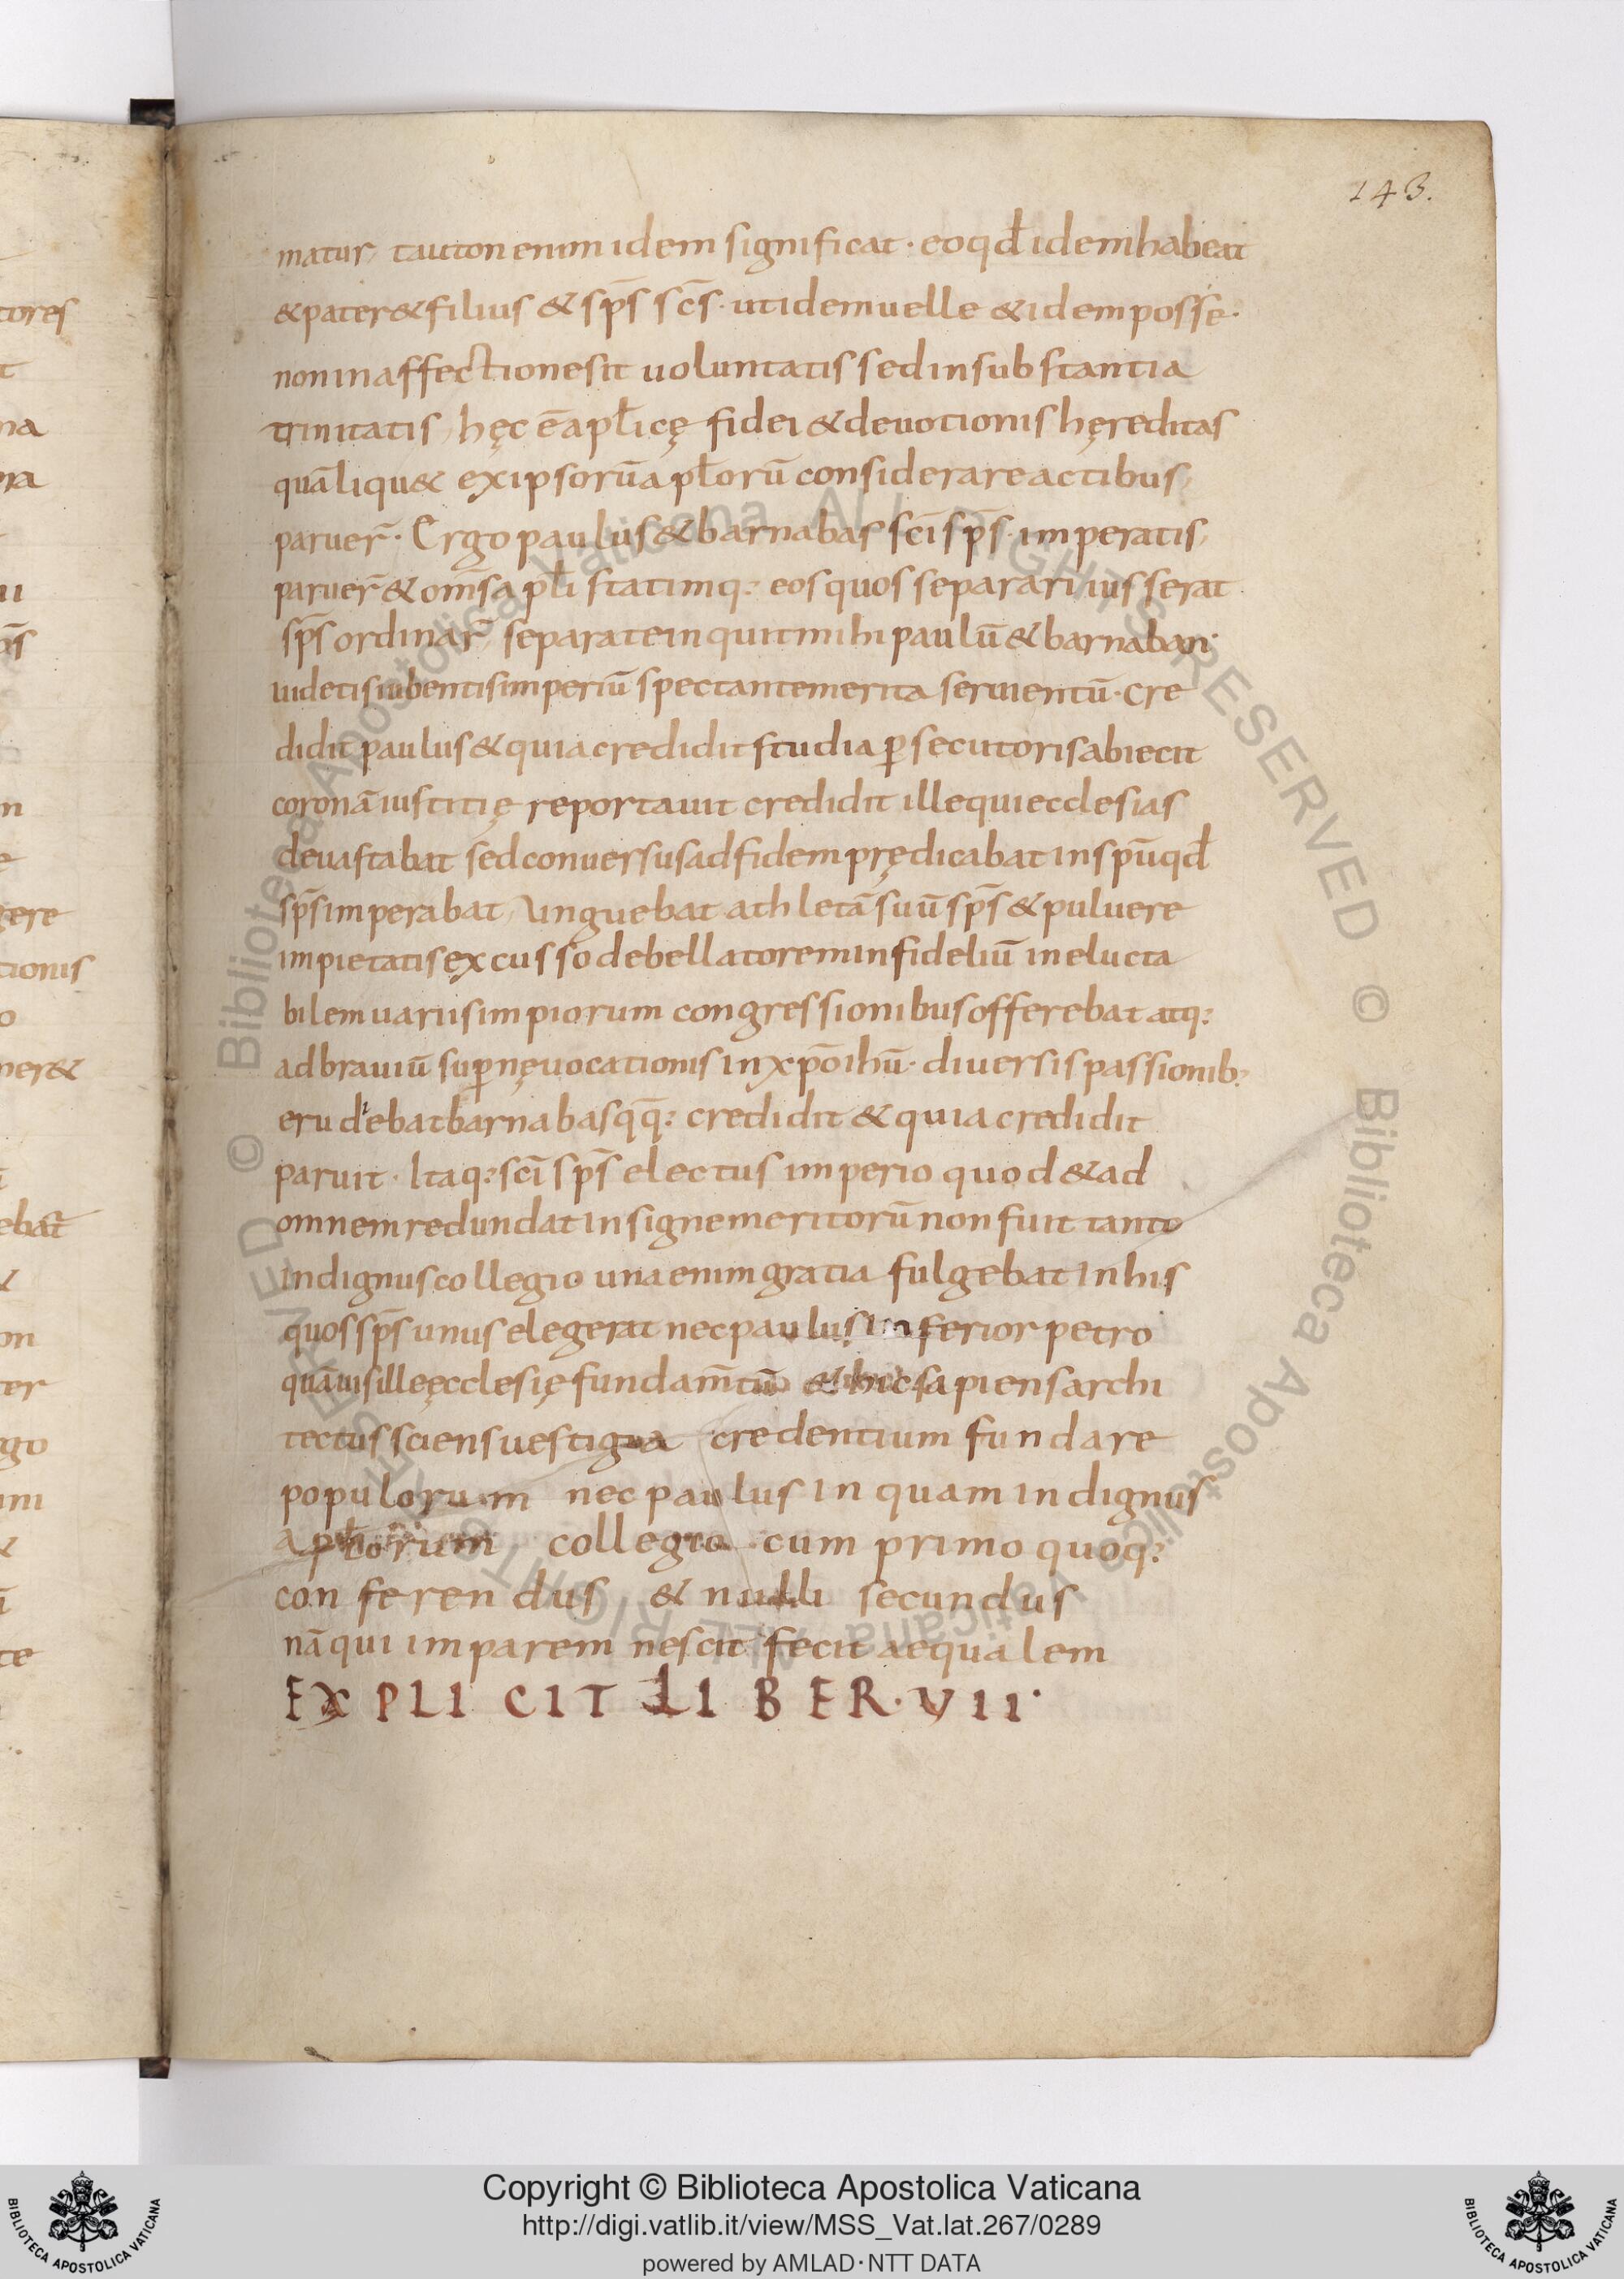 143.
matur, tauton enim idem significat · eo qđ idem habeat
& pater & filius & sp̄s sc̄s · ut idem uelle & idem posse ·
non in affectione sit uoluntatis sed in substantia
trinitatis, hęc ē apłicę fidei & deuotionis hęreditas
quā liqu& ex ipsorū apłorū considerare actibus,
paruer̄ · Ergo paulus & barnabas sc̄i sp̄s imperatis,
paruer̄ & om̄s apłi statimq; eos quos separari iusserat
sp̄s ordinar̄, separate inquit mihi paulū & barnaban ·
uidetis iubentis imperiū spectante merita seruientū · cre
didit paulus & quia credidit studia ꝑsecutoris abiecit
coronā iustitię reportauit credidit ille qui ecclesias
deuastabat sed conuersus ad fidem prędicabat in spū qđ
sp̄s imperabat, unguebat athletā suū sp̄s & puluere
impietatis excusso debellatorem infideliū inelucta
bilem uariis impiorum congressionibus offerebat atq;
ad brauiū suꝑnę uocationis in xp̄o ihū · diuersis passionib;
erudiebat barnabas qq̄; credidit & quia credidit
paruit · Itaq; sc̄i sp̄s electus imperio quod & ad
omnem redundat insigne meritorū non fuit tanto
indignus collegio una enim gratia fulgebat in his
quos sp̄s unus elegerat nec paulus inferior petro
quāuis ille ęcclesię fundam̄tū & hic sapiens archi
tectus sciens uestigia credentium fundare
populorum nec paulus inquam indignus
apłorum collegio cum primo quoq;
conferendus & nulli secundus
nā qui imparem nescit fecit aequalem
EXPLICIT LIBER · VII ·
tores
t
na
era
ui
gere
tionis
o
ner&
ebat
on
ter
go
te
Copyright © Biblioteca Apostolica Vaticana
http://digi.vatlib.it/view/MSS_Vat.lat.267/0289
powered by AMLAD·NTT DATA
BIBLIOTECA APOSTOLICA VATICANA
BIBLIOTECA APOSTOLICA VATICANA
© Biblioteca Apostolica Vaticana ALL RIGHTS RESERVED © Biblioteca Apostolica Vaticana ALL RIGHTS RESERVED